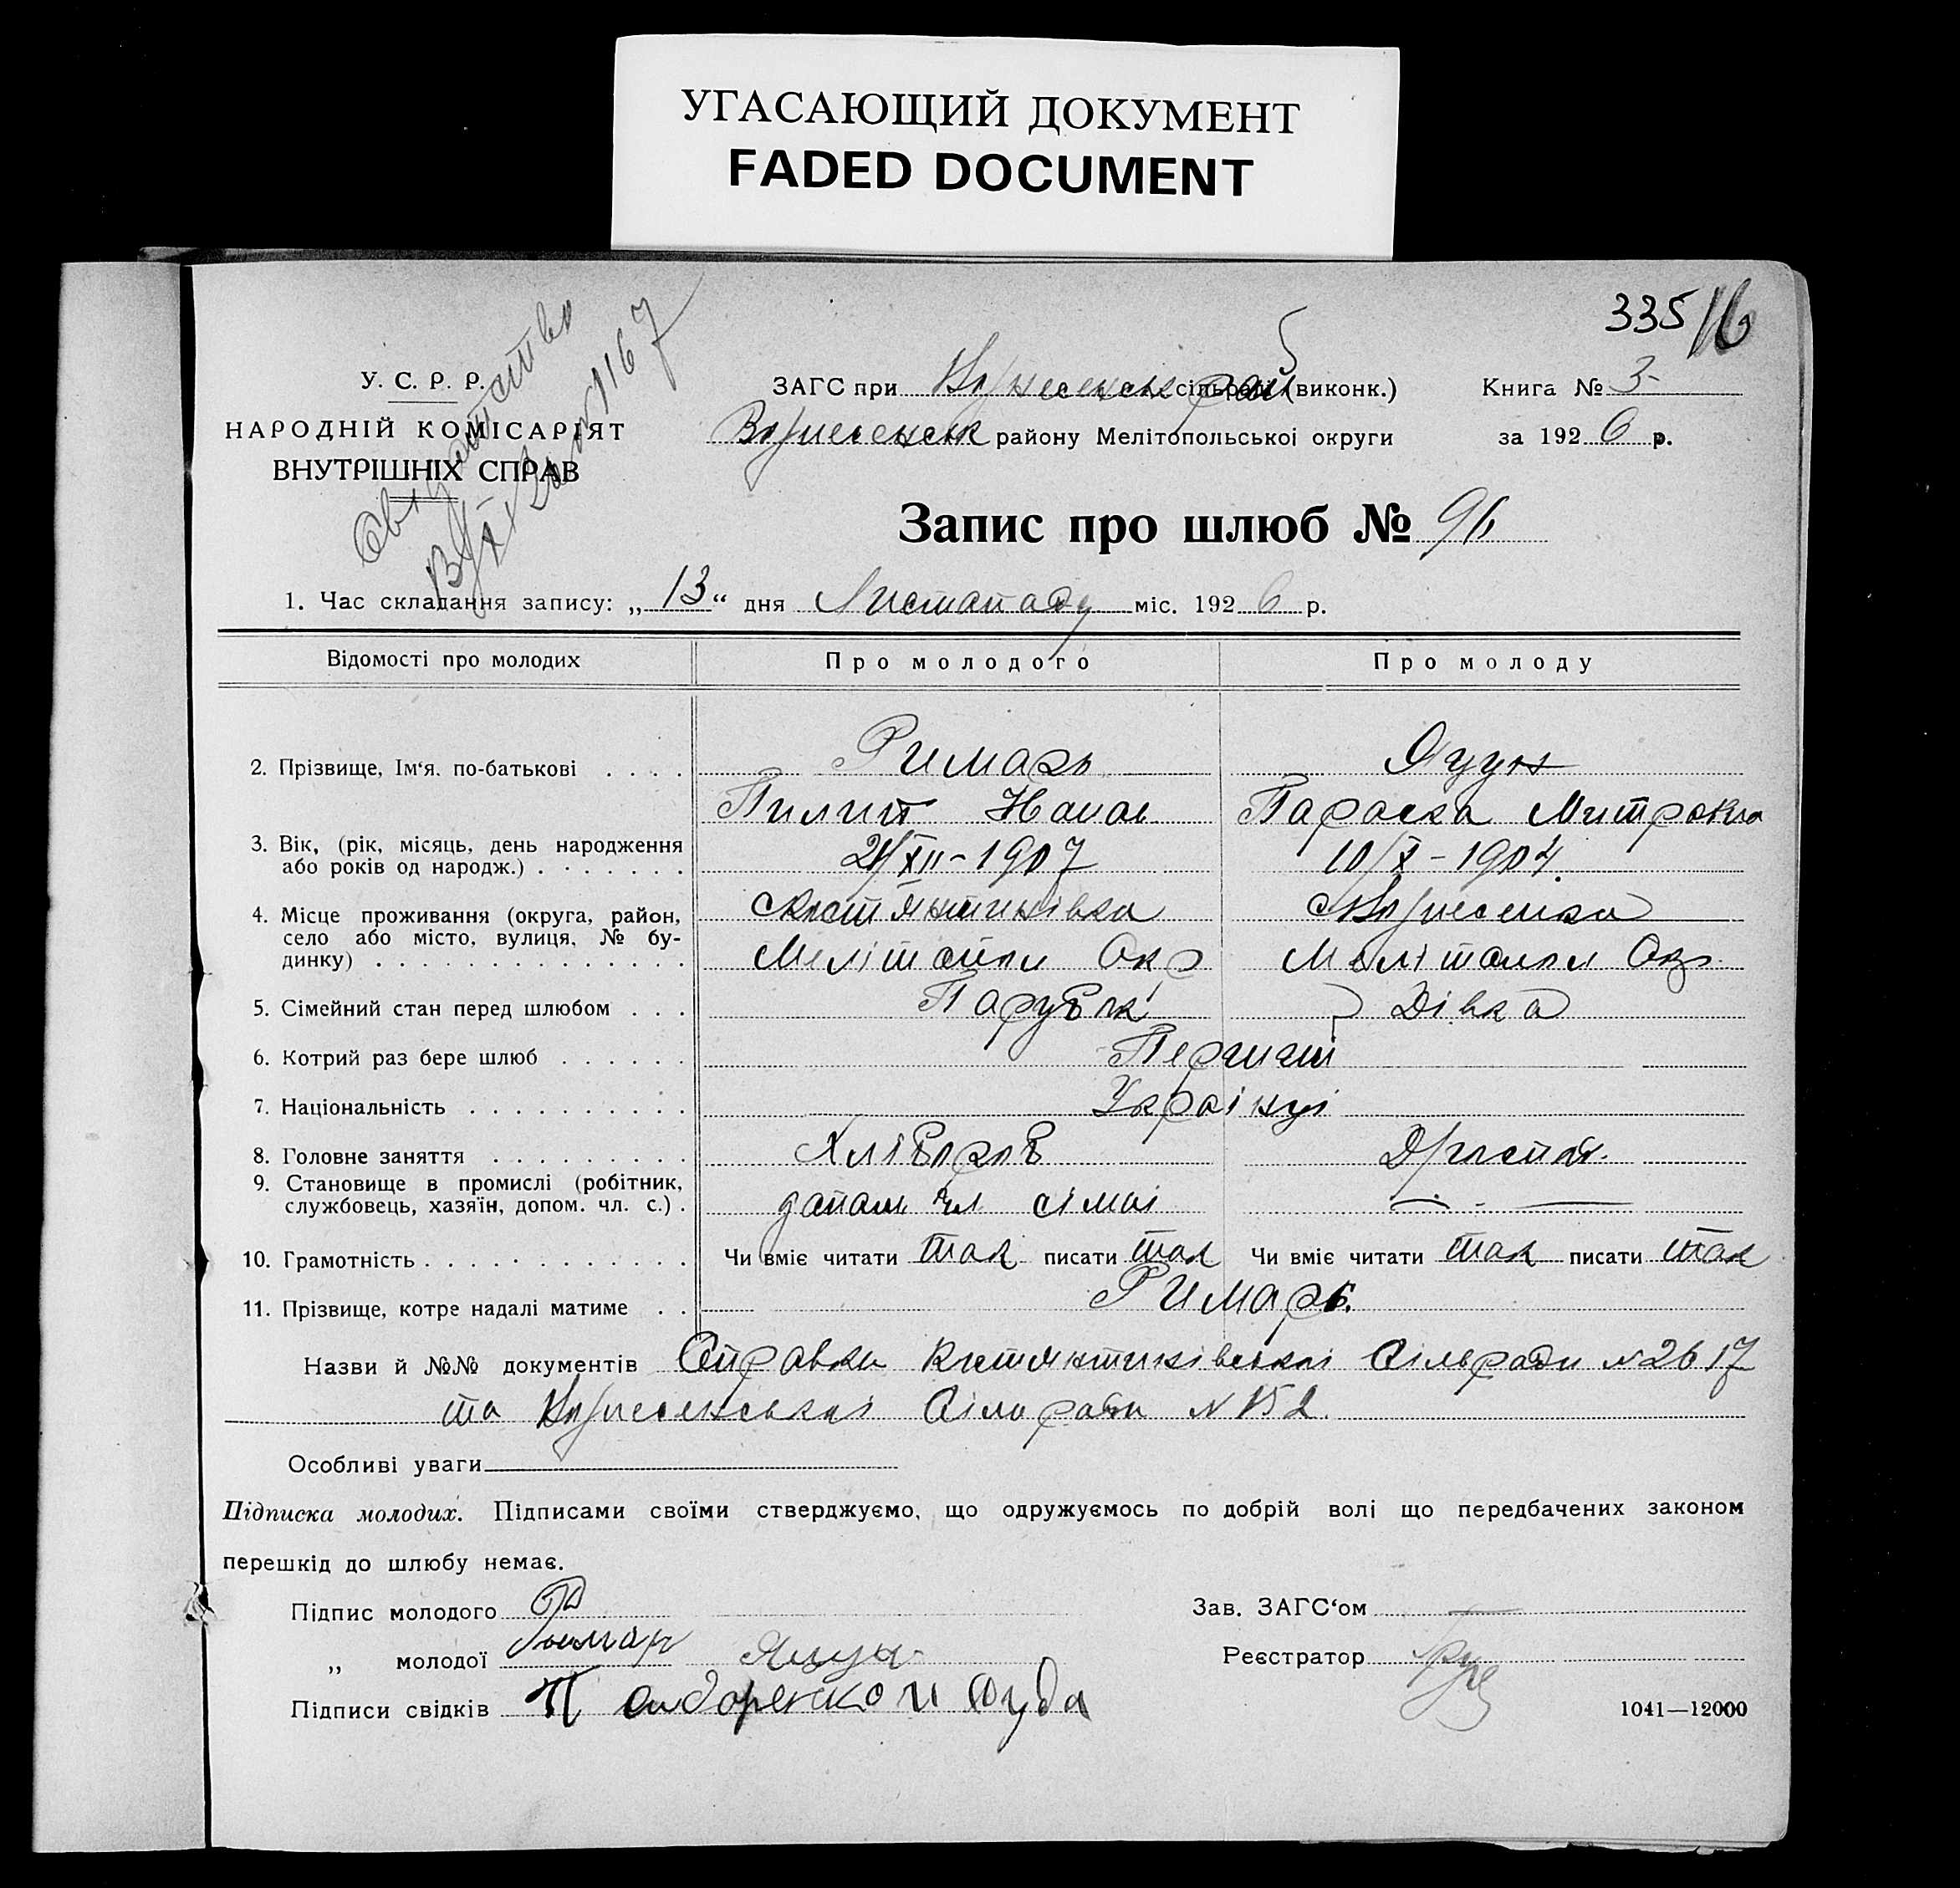 УГАСАЮЩИЙ ДОКУМЕНТ
FADED DOCUMENT
335
16
У. С. Р. Р.
НАРОДНІЙ КОМІСАРІЯТ
ВНУТРІШНІХ СПРАВ
ЗАГС при Вознесенськ сільради (виконк.) Книга № 3
Вознесенськ району Мелітопольської округи за 1926 р.
Запис про шлюб № 96
1. Час складання запису: „13“ дня Листопаду міс. 1926 р.
Відомості про молодих Про молодого Про молоду
2. Прізвище, Ім‘я. по-батькові Римарь Яцун
Пилип Параска Митрохва
3. Вік, (рік, місяць, день народження
або років од народж.) 21/XII-1907 10/X-1904.
4. Місце проживання (округа, район, с Костянтинівка с Вознесенка
село або місто, вулиця, № бу-
динку) Мелітопол Окр Мелітопол Окр
5. Сімейний стан перед шлюбом Парубок Дівка
6. Котрий раз бере шлюб Перший
7. Національність Українці
8. Головне заняття Хлібороб
9. Становище в промислі (робітник,
службовець, хазяїн, допом. чл. с.) допом чл сімоі
10. Грамотність Чи вміє читати так писати так Чи вміє читати так писати так
11. Прізвище, котре надалі матиме Римарь.
Назви й №№ документів Справка Костянтинівської Сільради № 2617
та Вознесенської Сілради № 152.
Особливі уваги
Підписка молодих. Підписами своїми стверджуємо, що одружуємось по добрій волі що передбачених законом
перешкід до шлюбу немає.
Підпис молодого Зав. ЗАГС‘ом
Римар
„ молодої Яцун Реєстратор
Підписи свідків П Сидоренко и Худа
1041—12000